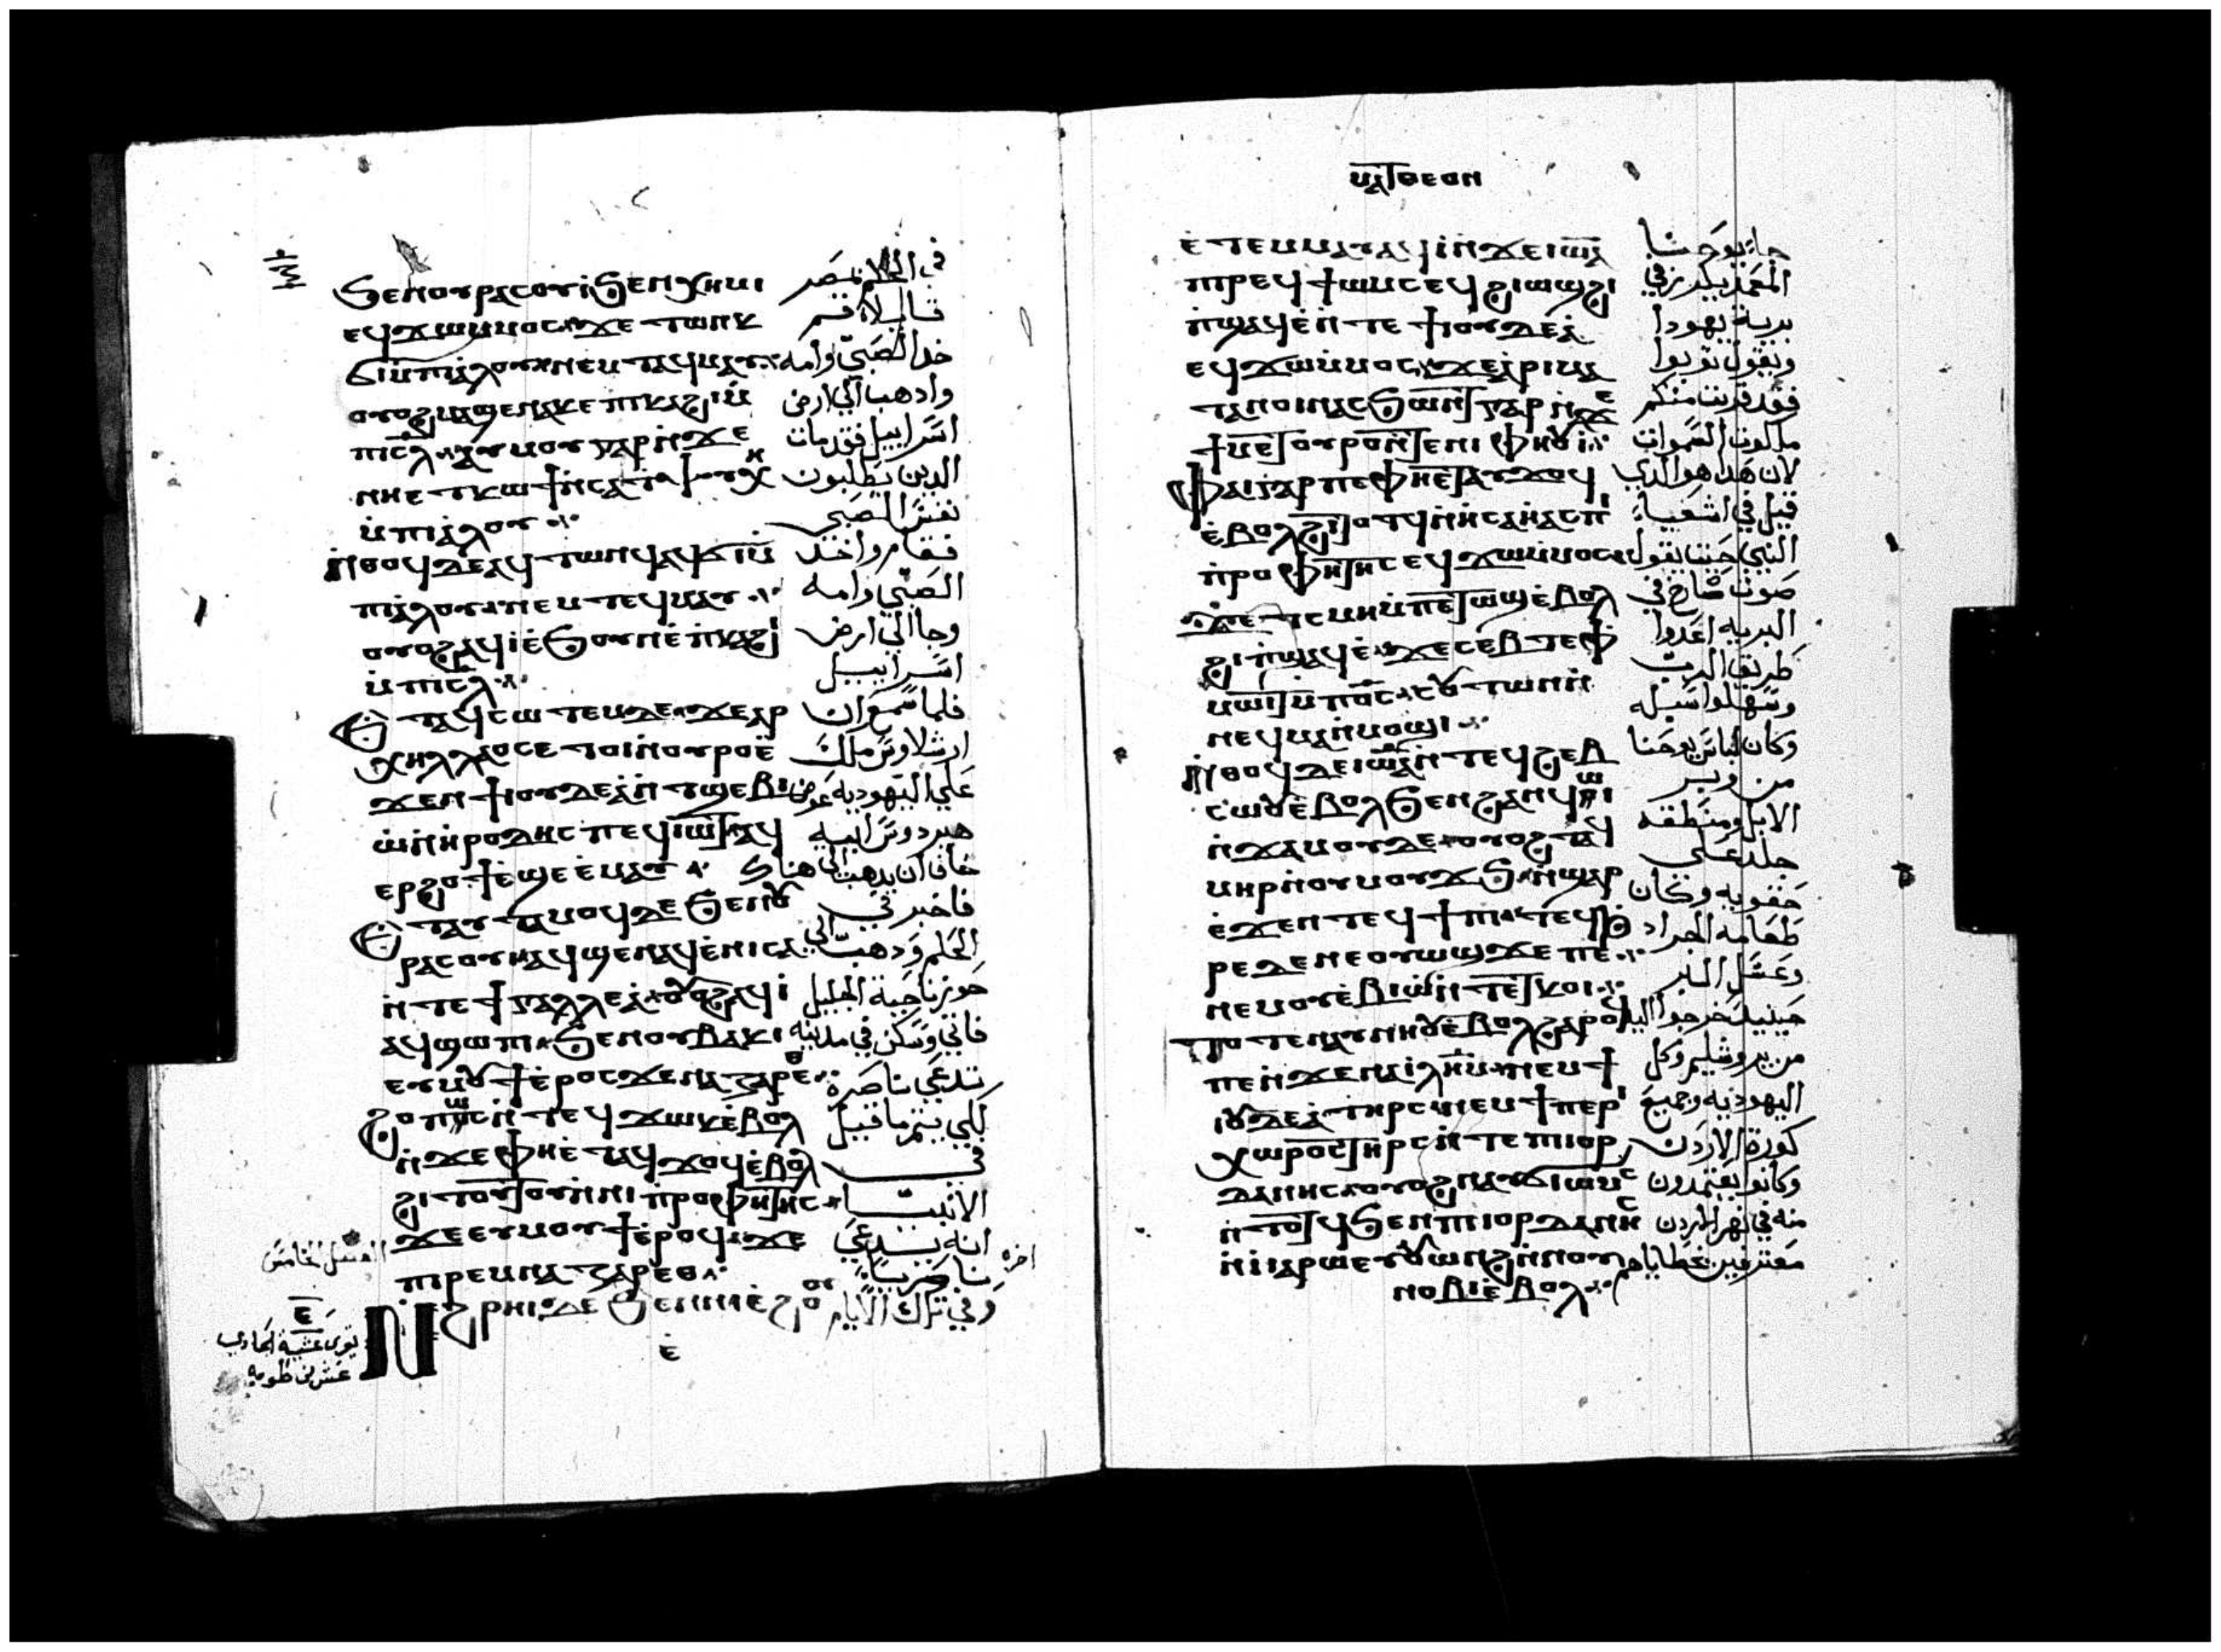 ϧⲉⲛⲟⲩⲣⲁⲥⲟⲩⲓ ϧⲉⲛⲭⲏⲙⲓ في الحلم بمصر
ⲉϥϫⲱⲙⲙⲟⲥ ϫⲉ ⲧⲱⲛⲕ قايلا قم
ϭⲓⲙⲡⲓⲁⲗⲟⲩ ⲛⲉⲙ ⲧⲉϥⲙⲁⲩ خد الصبي وامه
ⲟⲩⲟϩ ⲙⲁϣⲉⲛⲁⲕ ⲉⲡⲕⲁϩⲓ ⲙ̀ وادهب الي ارض
ⲡⲓⲥⲗ ⲁⲩⲙⲟⲩ ⲅⲁⲣ ⲛ̀ϫⲉ اسراييل فقد مات
ⲛⲏⲉⲧⲕⲱϯ ⲛ̀ⲥⲁ الدين يطلبون
ⲙ̀ⲡⲓⲁⲗⲟⲩ نفس الصبي
ⲛ̀ⲑⲟϥ ⲇⲉ ⲁϥⲧⲱⲛϥ ⲁϥϭⲓⲙ̀ فقام واخد
ⲡⲓⲁⲗⲟⲩ ⲛⲉⲙ ⲧⲉϥⲙⲁⲩ الصبي وامه
ⲟⲩⲟϩ ⲁϥⲓ ⲉ̀ϧⲟⲩⲛ ⲉ̀ⲡⲕⲁϩⲓ وجا الي ارض
ⲙ̀ⲡⲓⲥⲗ اسراييل
ⲉⲧⲁϥⲥⲱⲧⲉⲙ ⲇⲉ ϫⲉ ⲁⲣ فلما سمع ان
ⲭⲏⲗⲗⲁⲟⲥ ⲉⲧⲟⲓ ⲛ̀ⲟⲩⲣⲟ ⲉ̀ ارشلاوس ملك
ϫⲉⲛ ϯⲓⲟⲩⲇⲉⲁ ⲛ̀ⲧϣⲉⲃⲓ علي اليهودية عوض
ⲱ̀ ⲛ̀ⲏⲣⲟⲇⲏⲥ ⲡⲉϥⲓⲱⲧ ⲁϥ هيردوس ابيه
ⲉⲣϩⲟϯ ⲉ̀ϣⲉ ⲉ̀ⲙⲁⲩ خاف ان يدهب الي هناك
ⲉⲧⲁⲩⲧⲁⲙⲟϥ ⲇⲉ ϧⲉⲛⲟⲩ فاخبر في
ⲣⲁⲥⲟⲩⲓ ⲁϥϣⲉⲛⲁϥ ⲉ̀ⲛⲓⲥⲁ الحلم ودهب الي
ⲛ̀ⲧⲉ ϯⲅⲁⲗⲗⲉⲁ ⲟⲩⲟϩ ⲁϥⲓ حوز ناحية الجليل
ⲁϥϣⲱⲡⲓ ϧⲉⲛ ⲟⲩⲃⲁⲕⲓ فاتي وسكن في مدينه
ⲉⲩⲙⲟⲩϯ ⲉ̀ⲣⲟⲥ ϫⲉ ⲛⲁⲍⲁⲣⲉⲑ تدعي ناصرة
ϩⲟⲡⲱⲥ ⲛ̀ⲧⲉϥϫⲱⲕ ⲉ̀ⲃⲟⲗ لكي يتم ما قيل
ⲛ̀ϫⲉ ⲫⲏⲉ̀ⲧⲁϥϫⲟϥ ⲉ̀ⲃⲟⲗ في
ϩⲓⲧⲟⲧⲟⲩ ⲛ̀ⲛⲓⲡⲣⲟⲫⲏⲧⲏⲥ الانبيا
ϫⲉ ⲉⲩⲙⲟⲩϯ ⲉ̀ⲣⲟϥ ϫⲉ انه يدعي
ⲡⲓⲣⲉⲙⲛⲁⲍⲁⲣⲉⲑ ناصريا اخره
الفصل الخامس
ⲛ̀ϩⲣⲏⲓ ⲇⲉ ϧⲉⲛ ⲛⲓⲉ̀ϩⲟⲟⲩ وفي تلك الايام
ⲉ̅
ⲉ̀
ⲙⲁⲧⲑⲉⲟⲛ
ⲉ̀ⲧⲉⲙⲙⲁⲩ ⲁϥⲓ ⲛ̀ϫⲉ ⲓⲱⲁ جا يوحنا
ⲡⲓⲣⲉϥϯⲱⲙⲥ ⲉϥϩⲓⲱⲓϣ ϩⲓ المعمد يكرز في
ⲡ̀ϣⲁϥⲉ ⲛ̀ⲧⲉ ϯⲓⲟⲩⲇⲉⲁ برية يهودا
ⲉϥϫⲱⲙ̀ⲙⲟⲥ ϫⲉ ⲁⲣⲓⲙⲉ ويقول توبوا
ⲧⲁⲛⲟⲓⲛ ⲁⲥϧⲱⲛⲧ ⲅⲁⲣ ⲛ̀ϫⲉ فقد قربت منكم
ϯⲙⲉⲧⲟⲩⲣⲟ ⲛ̀ⲧⲉ ⲛⲓⲫⲏⲟⲩⲓ ملكوت السموات
ⲫⲁⲓ ⲅⲁⲣ ⲡⲉ ⲫⲏⲉⲧⲁⲩϫⲟϥ لان هدا هو الدي
ⲉ̀ⲃⲟⲗ ϩⲓⲧⲟⲧϥ ⲛ̀ⲏⲥⲁⲏⲁⲥ ⲡⲓ قيل في اشعياء
ⲡ̀ⲣⲟⲫⲏⲧⲏⲥ ⲉϥϫⲱⲙ̀ⲙⲟⲥ النبي حيت يقول
ϫⲉ ⲧⲥⲙⲏ ⲙ̀ⲡⲉⲧⲱϣ ⲉ̀ⲃⲟⲗ صوت صارخ في
ϩⲓ ⲡ̀ϣⲁϥⲉ ϫⲉ ⲥⲉⲃⲧⲉ ⲫ البريه اعدوا
ⲙⲱⲓⲧ ⲙ̀ⲡⲟⲥ ⲥⲟⲩⲧⲱⲛ ⲛ̀ طريق الرب
ⲛⲉϥⲙⲁⲛⲙⲟϣⲓ وسهلوا سبله
ⲛ̀ⲑⲟϥ ⲇⲉ ⲓⲱⲁ ⲛⲉ ⲧⲉϥϩⲉⲃ وكان لباس يوحنا
ⲥⲱ ⲟⲩⲉ̀ⲃⲟⲗ ϧⲉⲛ ϩⲁⲛϥⲱⲓ من وبر
ⲛ̀ϫⲁⲙⲟⲩⲗ ⲟⲩⲟϩ ⲛⲁϥ الابل ومنطقه
ⲙⲏⲣ ⲛ̀ⲟⲩⲙⲟⲩϫϧ ⲛ̀ϣⲁⲣ جلد علي
ⲉ̀ϫⲉⲛ ⲧⲉϥϯⲡⲓ ⲧⲉϥϧ حقويه وكان
ⲣⲉ ⲇⲉ ⲛⲉ ⲟⲩϣϫⲉ ⲡⲉ طعامه الجراد
ⲛⲉⲙ ⲟⲩⲉ̀ⲃⲓⲱ ⲛ̀ⲧⲉ ⲧⲕⲟⲓ وعسل البر
ⲧⲟⲧⲉ ⲛⲁⲩⲛⲏⲟⲩ ⲉ̀ⲃⲟⲗ ϩⲁⲣⲟϥ حينيد خرجوا اليه
ⲡⲉ ⲛ̀ϫⲉ ⲛⲁⲓⲗⲏⲙ ⲛⲉⲙ ϯ من يروشليم وكل
ⲓⲟⲩⲇⲉⲁ ⲧⲏⲣⲥ ⲛⲉⲙ ϯⲡⲉⲣⲓ اليهودية وجميع
ⲭⲱⲣⲟⲥ ⲧⲏⲣⲥ ⲛ̀ⲧⲉ ⲡⲓⲓⲟⲣ كورة الاردن
ⲇⲁⲛⲏⲥ ⲟⲩⲟϩ ⲛⲁⲩϭⲓⲱⲙⲥ وكانوا يعتمدون
ⲛ̀ⲧⲟⲧϥ ϧⲉⲛ ⲡⲓⲓⲟⲣⲇⲁⲛⲏⲥ منه في نهر الاردن
ⲛ̀ⲓⲁⲣⲟ ⲉⲩⲟⲩⲱⲛϩ ⲛ̀ⲛⲟⲩ معترفين بخطاياهم
ⲛⲟⲃⲓ ⲉ̀ⲃⲟⲗ